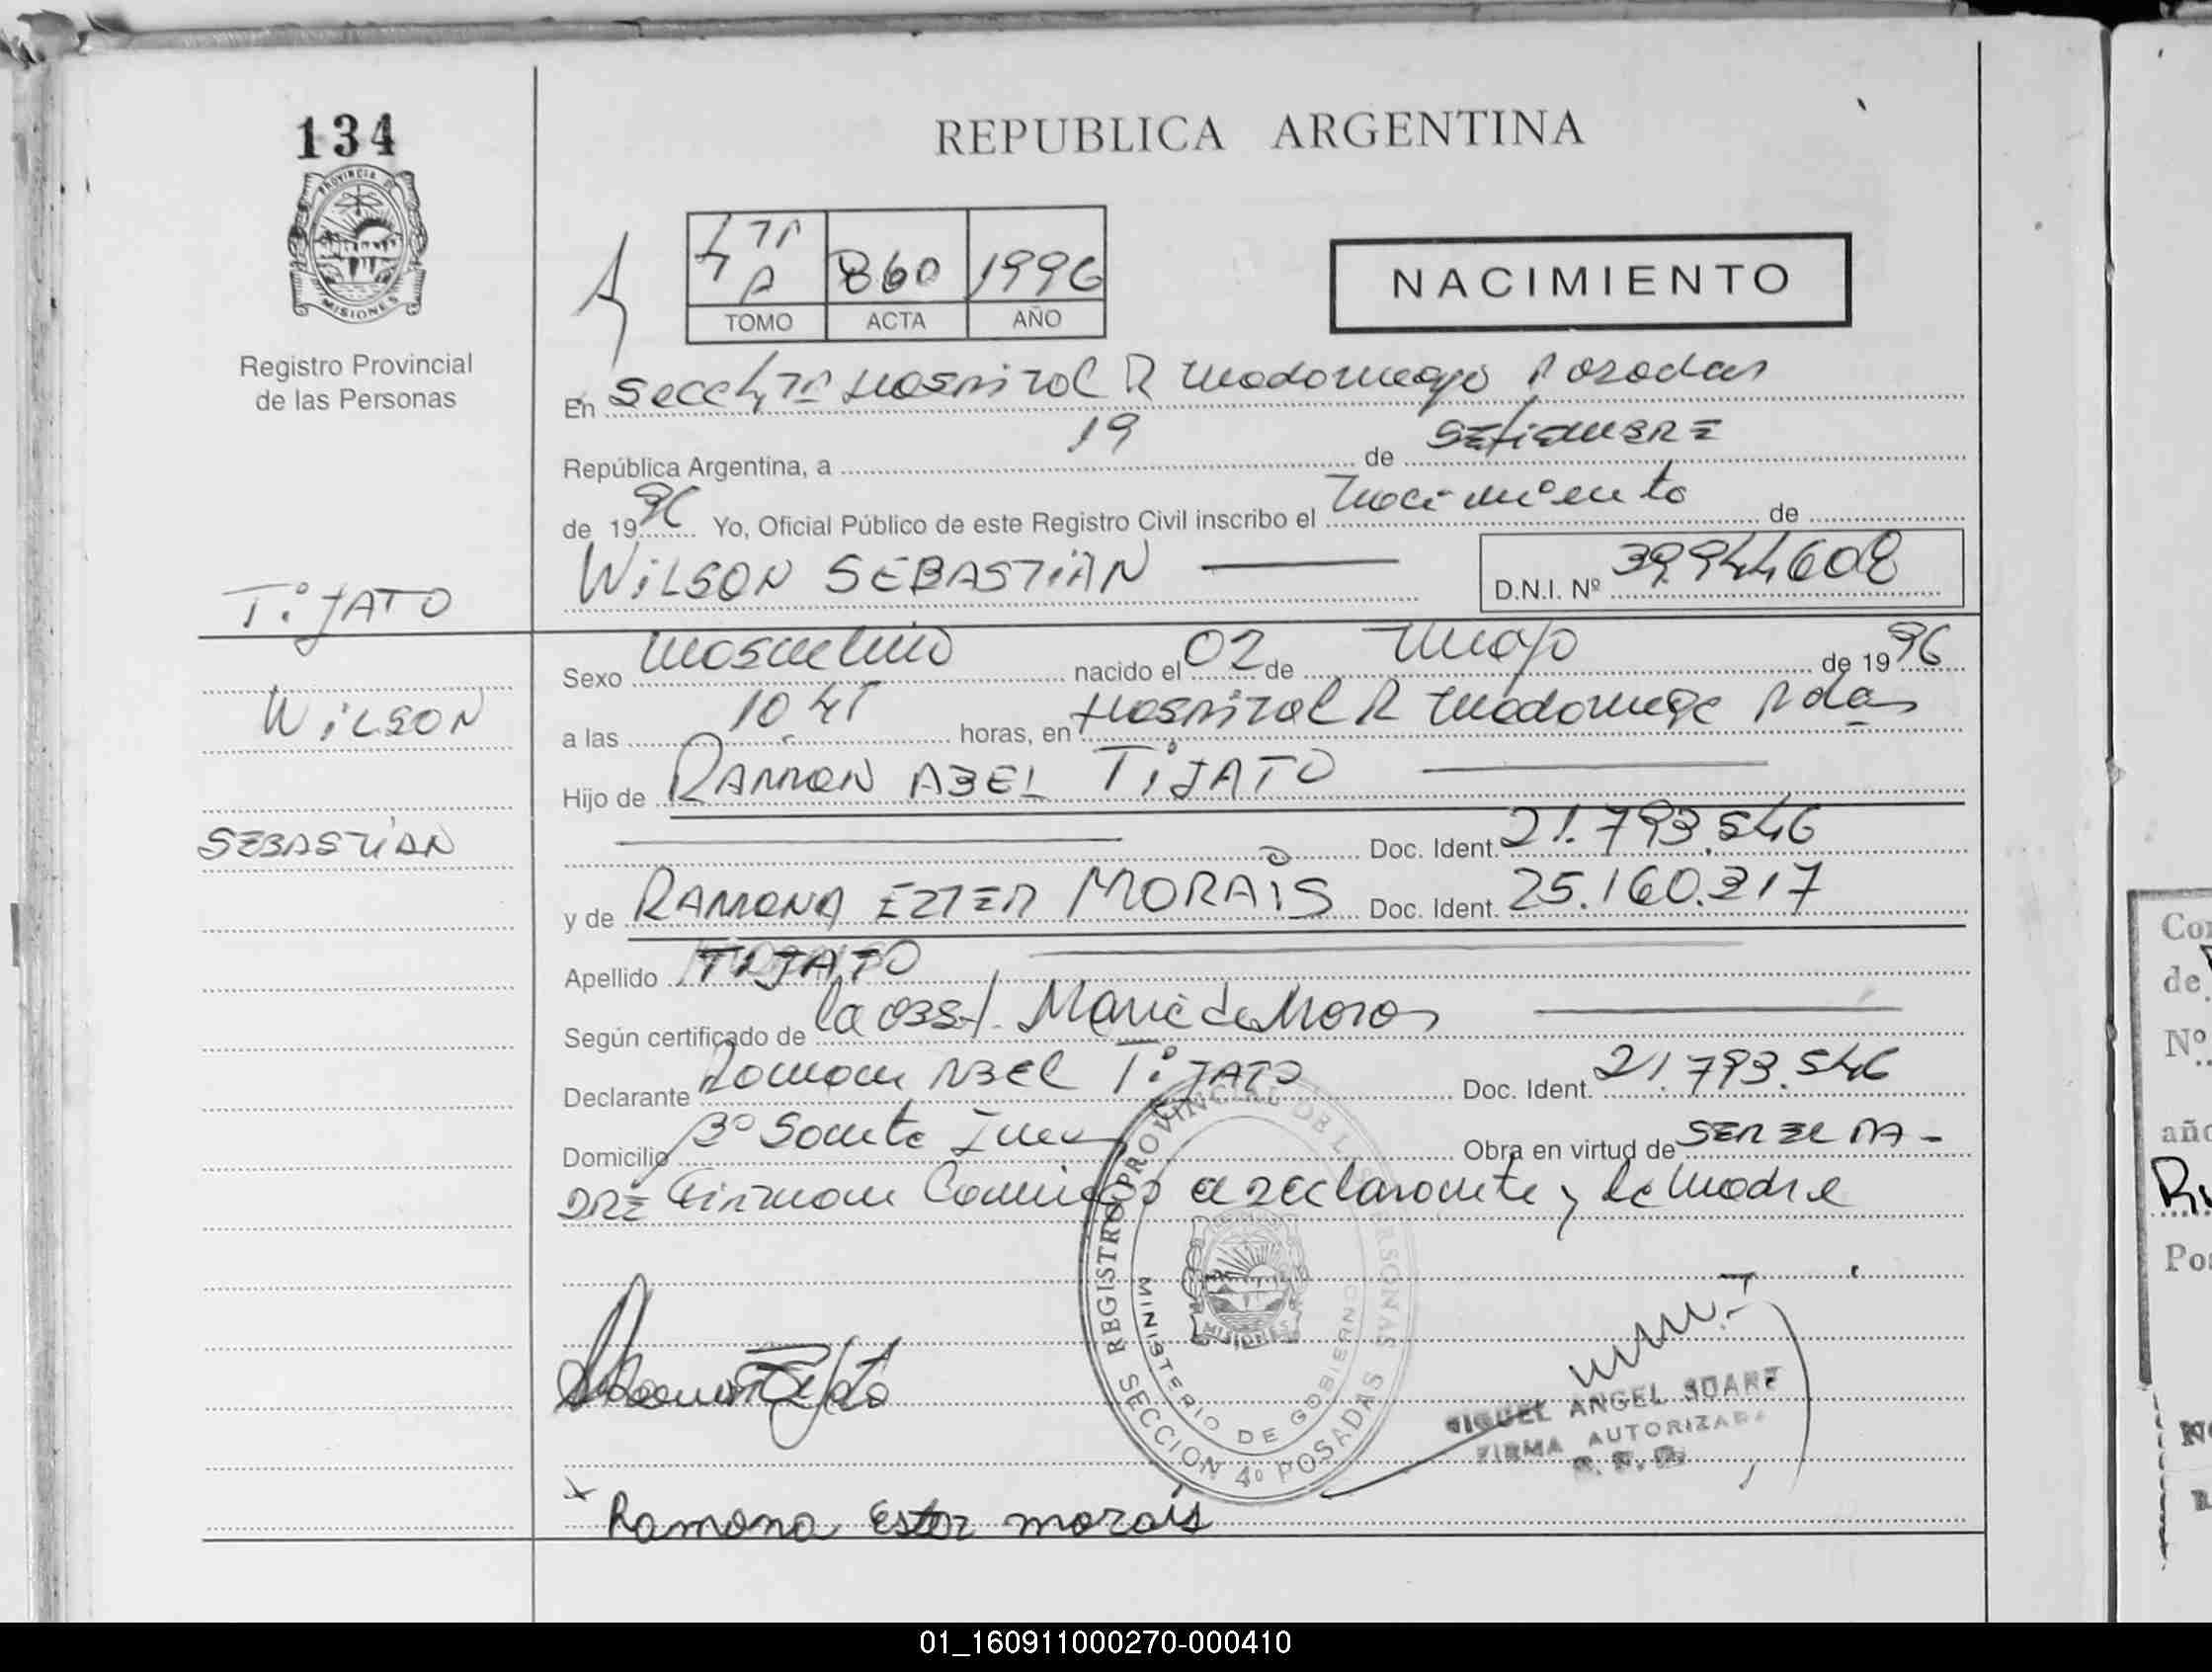 134
PROVINCIA DE
MISIONES
Registro Provincial
de las Personas
TiJATO
WiLSON
SEBASTIAN
REPUBLICA ARGENTINA
4ta A 860 1996
TOMO ACTA AÑO
NACIMIENTO
En Secc 4ta Hospital R Madariaga Posadas
República Argentina, a 19 de SEtiEMBRE
de 1996 Yo, Oficial Público de este Registro Civil inscribo el Nacimiento de
WiLSON SEBASTIAN D.N.I. Nº 39.944608
Sexo Masculino nacido el 02 de Mayo de 1996
a las 10 45 horas, en Hospital R Madariaga Pdas
Hijo de RAMON ABEL TiJATO
Doc. Ident. 21.793.546
y de RAMONA EZTER MORAiS Doc. Ident. 25.160.317
Apellido TIJATO
Según certificado de la obst. Maria de
Declarante Ramon Abel TiJATO Doc. Ident. 21.793.546
Domicilio Bº Santa Ines Obra en virtud de SER EL PA-
DRE Firman Conmigo el declarante y la Madre
REGISTRO PROVINCIAL DE LAS PERSONAS
MINISTERIO DE GOBIERNO
MISIONES
SECCION 4º POSADAS
MIGUEL ANGEL SUAREZ
FIRMA AUTORIZADA
x Ramona Ester morais
Co
de
Nº
año
Po
01_160911000270-000410